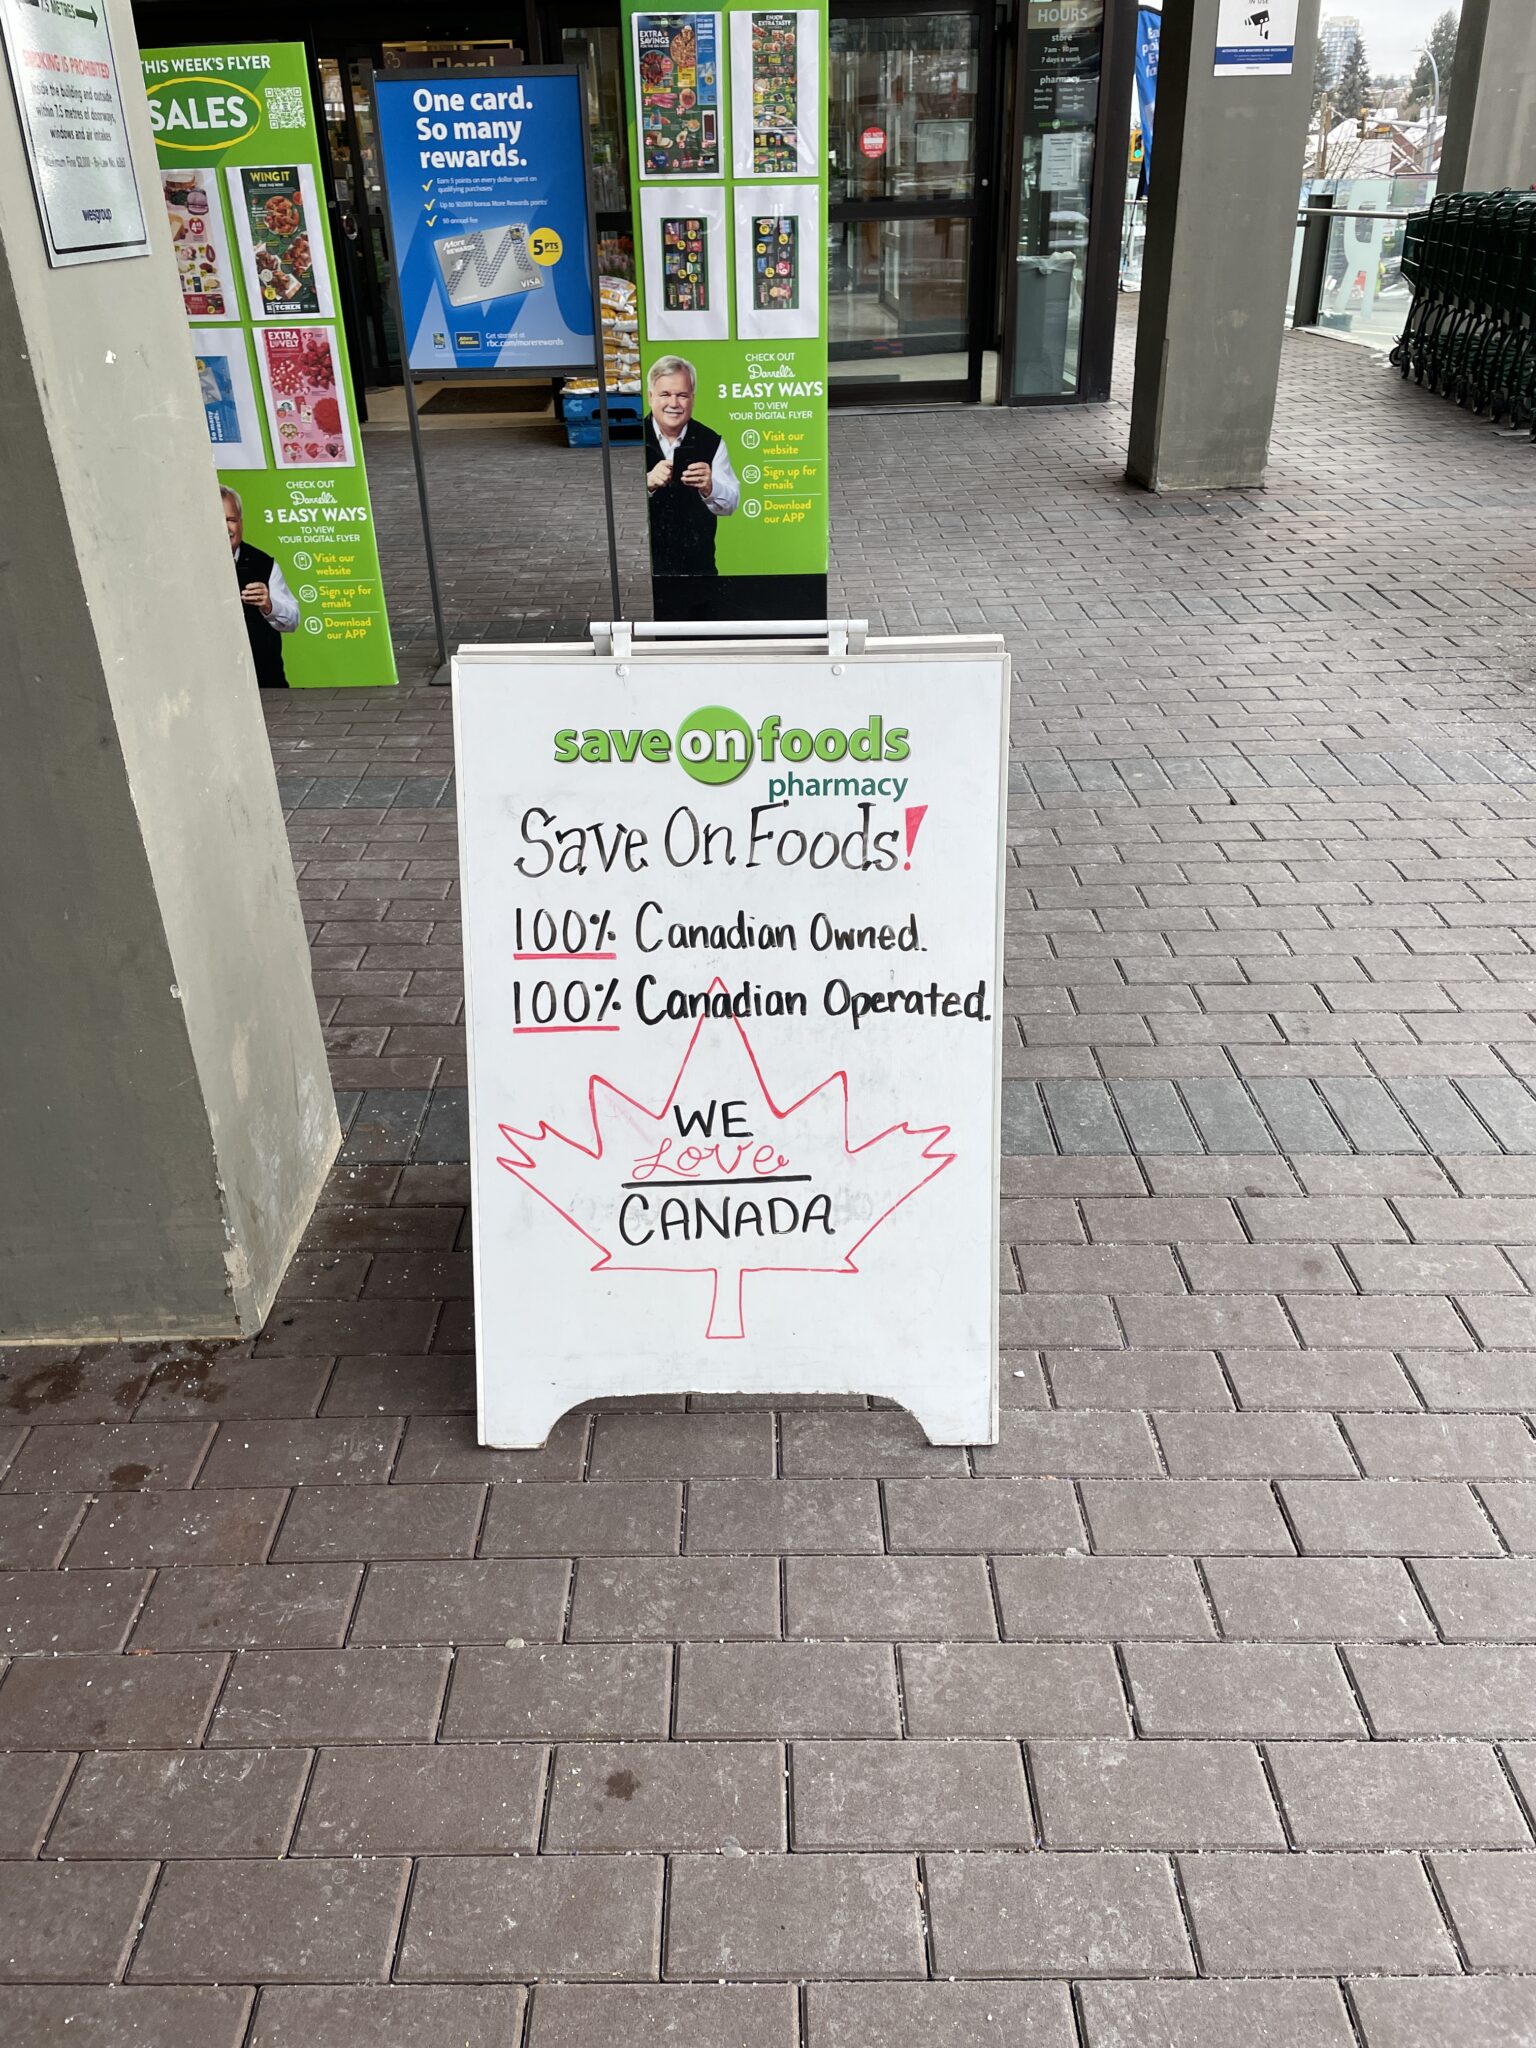 7.5 METRES
SMOKING IS PROHIBITED
inside the building and outside
within 7.5 metres of doorways,
windows and air intakes
wesgroup
THIS WEEK'S FLYER
SALES
WING IT
KITCHEN
EXTRA
LOVELY
CHECK OUT
Darrell's
3 EASY WAYS
TO VIEW
YOUR DIGITAL FLYER
Visit our
website
Sign up for
emails
Download
our APP
Floral
One card.
So many
rewards.
Earn 5 points on every dollar spent on
qualifying purchases
Up to 50,000 bonus More Rewards points
$0 annual fee
More
REWARDS
5 PTS
VISA
RBC
Get started at
rbc.com/morerewards
EXTRA
SAVINGS
ENJOY
EXTRA TASTY
CHECK OUT
Darrell's
3 EASY WAYS
TO VIEW
YOUR DIGITAL FLYER
Visit our
website
Sign up for
emails
Download
our APP
DO NOT
ENTER
HOURS
store
7am - 10pm
7 days a week
pharmacy
IN USE
save on foods
pharmacy
Save On Foods!
100% Canadian Owned.
100% Canadian Operated.
WE
Love
CANADA